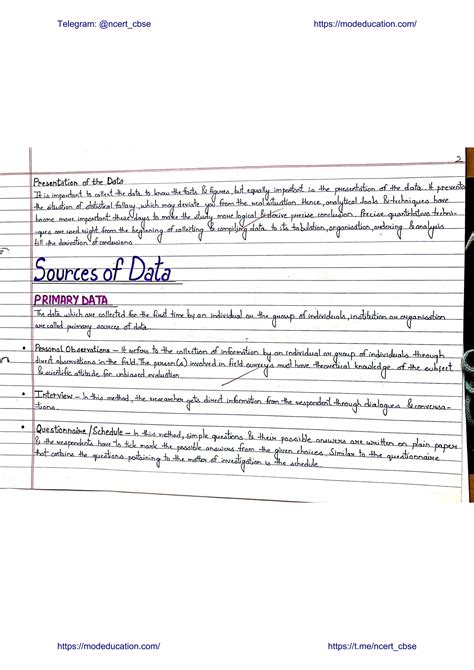 Telegram: @ncert_cbse
https://modeducation.com/
2
Presentation of the Data
It is important to collect the data to know the facts & figures, but equally important is the presentation of the data. It prevents
the situation of statistical fallacy, which may deviate you from the real situation. Hence, analytical tools & techniques have
become more important these days to make the study more logical & derive precise conclusion. Precise quantitative techni-
ques are used right from the beginning of collecting & compiling data to its tabulation, organisation, ordering & analysis
till the derivation of conclusions.
Sources of Data
PRIMARY DATA
The data which are collected for the first time by an individual or the group of individuals, institution or organisation
are called primary sources of data.
• Personal Observations – It refers to the collection of information by an individual or group of individuals through
direct observations in the field. The person(s) involved in field surveys must have theoretical knowledge of the subject
& scientific attitude for unbiased evaluation.
• Interview – In this method, the researcher gets direct information from the respondent through dialogues & conversa-
tions.
• Questionnaire / Schedule – In this method, simple questions & their possible answers are written on plain paper
& the respondents have to tick mark the possible answers from the given choices. Similar to the questionnaire
that contains the questions pertaining to the matter of investigation is the schedule.
https://modeducation.com/
https://t.me/ncert_cbse